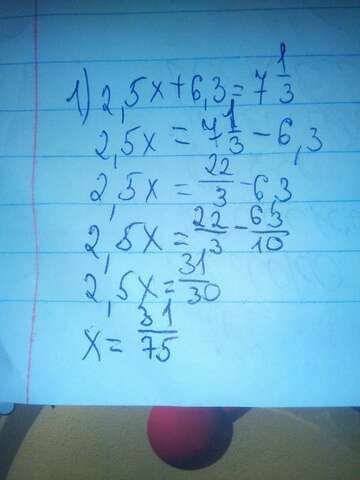 1) 2,5x+6,3=7 1/3
2,5x=7 1/3-6,3
2,5x=22/3-6,3
2,5x=22/3-63/10
2,5x=31/30
x=31/75